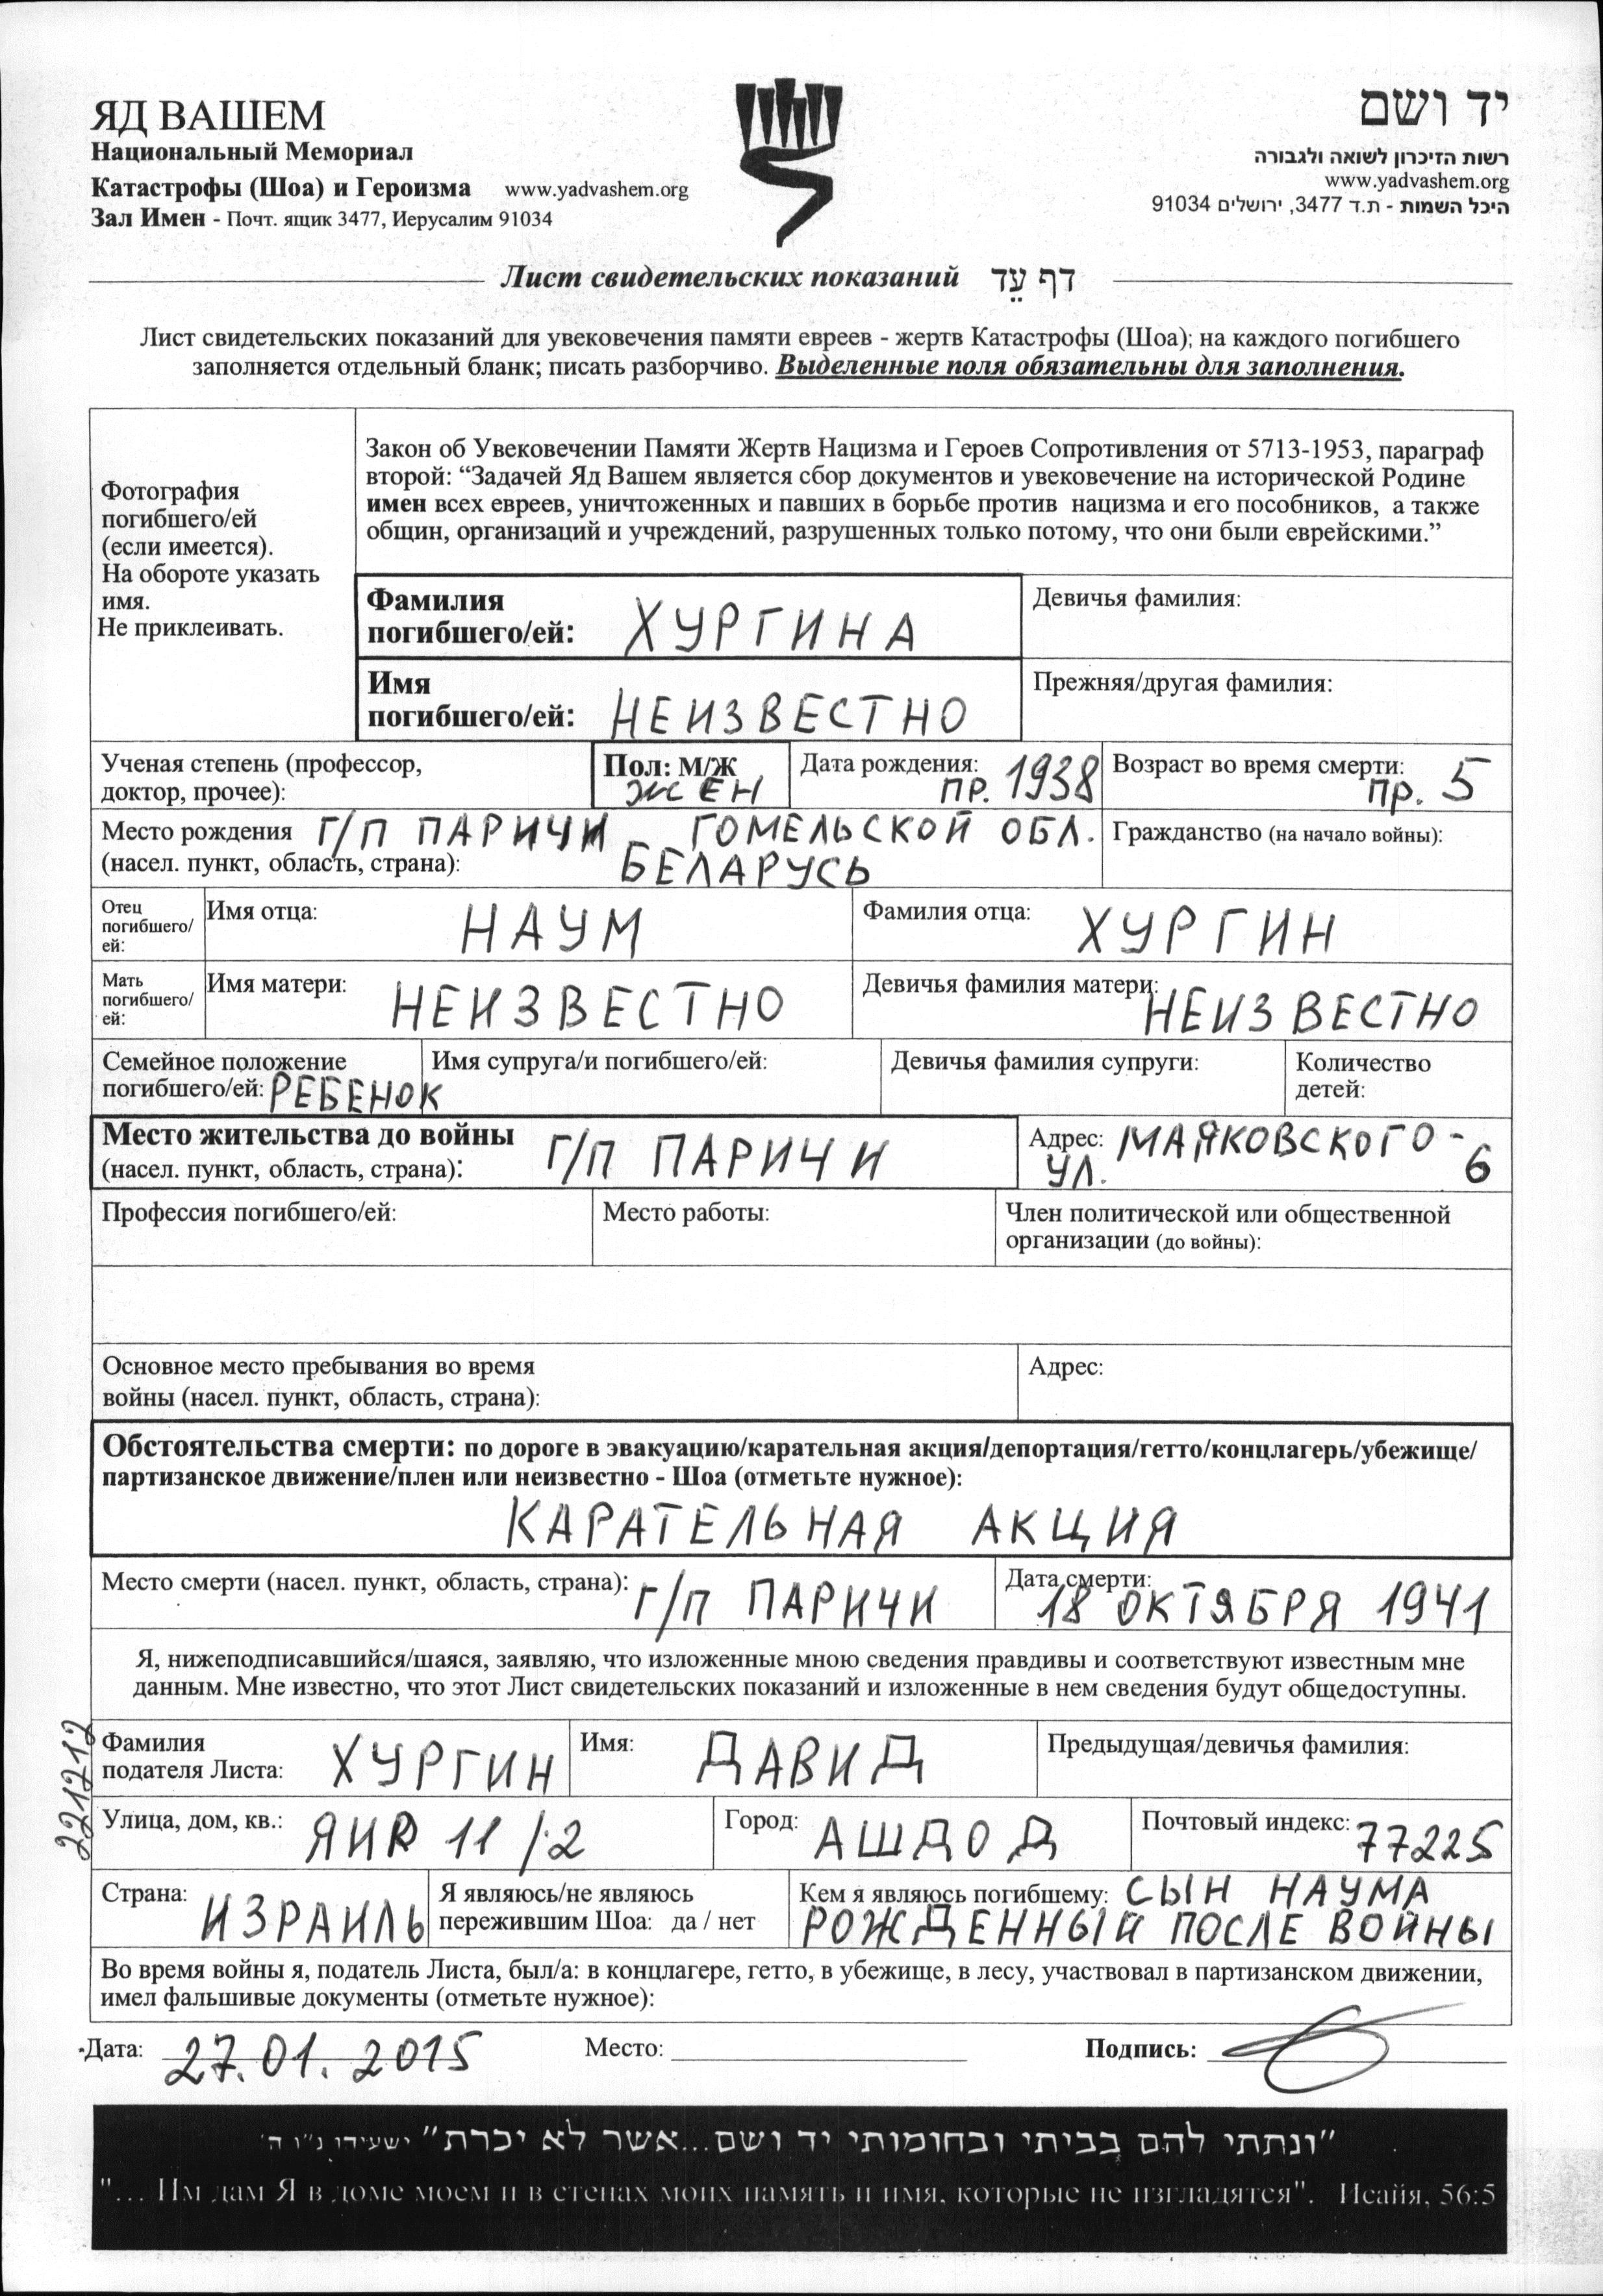 ЯД ВАШЕМ
Национальный Мемориал
Катастрофы (Шоа) и Героизма www.yadvashem.org
Зал Имен - Почт. ящик 3477, Иерусалим 91034
יד ושם
רשות הזיכרון לשואה ולגבורה
www.yadvashem.org
היכל השמות - ת.ד 3477, ירושלים 91034
Лист свидетельских показаний דף עֵד
Лист свидетельских показаний для увековечения памяти евреев - жертв Катастрофы (Шоа); на каждого погибшего
заполняется отдельный бланк; писать разборчиво. Выделенные поля обязательны для заполнения.
Фотография
погибшего/ей
(если имеется).
На обороте указать
имя.
Не приклеивать.
Закон об Увековечении Памяти Жертв Нацизма и Героев Сопротивления от 5713-1953, параграф
второй: “Задачей Яд Вашем является сбор документов и увековечение на исторической Родине
имен всех евреев, уничтоженных и павших в борьбе против нацизма и его пособников, а также
общин, организаций и учреждений, разрушенных только потому, что они были еврейскими.”
Фамилия
погибшего/ей: ХУРГИНА
Девичья фамилия:
Имя
погибшего/ей: НЕИЗВЕСТНО
Прежняя/другая фамилия:
Ученая степень (профессор,
доктор, прочее):
Пол: М/Ж
ЖЕН
Дата рождения:
ПР. 1938
Возраст во время смерти:
ПР. 5
Место рождения Г/П ПАРИЧИ ГОМЕЛЬСКОЙ ОБЛ.
(насел. пункт, область, страна): БЕЛАРУСЬ
Гражданство (на начало войны):
Отец
погибшего/
ей:
Имя отца: НАУМ
Фамилия отца: ХУРГИН
Мать
погибшего/
ей:
Имя матери: НЕИЗВЕСТНО
Девичья фамилия матери: НЕИЗВЕСТНО
Семейное положение
погибшего/ей: РЕБЕНОК
Имя супруга/и погибшего/ей:
Девичья фамилия супруги:
Количество
детей:
Место жительства до войны
(насел. пункт, область, страна): Г/П ПАРИЧИ
Адрес: МАЯКОВСКОГО -
УЛ. 6
Профессия погибшего/ей:
Место работы:
Член политической или общественной
организации (до войны):
Основное место пребывания во время
войны (насел. пункт, область, страна):
Адрес:
Обстоятельства смерти: по дороге в эвакуацию/карательная акция/депортация/гетто/концлагерь/убежище/
партизанское движение/плен или неизвестно - Шоа (отметьте нужное):
КАРАТЕЛЬНАЯ АКЦИЯ
Место смерти (насел. пункт, область, страна): Г/П ПАРИЧИ
Дата смерти:
18 ОКТЯБРЯ 1941
Я, нижеподписавшийся/шаяся, заявляю, что изложенные мною сведения правдивы и соответствуют известным мне
данным. Мне известно, что этот Лист свидетельских показаний и изложенные в нем сведения будут общедоступны.
221212
Фамилия
подателя Листа: ХУРГИН
Имя: ДАВИД
Предыдущая/девичья фамилия:
Улица, дом, кв.: ЯИR 11 /2
Город: АШДОД
Почтовый индекс: 77225
Страна: ИЗРАИЛЬ
Я являюсь/не являюсь
пережившим Шоа: да / нет
Кем я являюсь погибшему: СЫН НАУМА
РОЖДЕННЫЙ ПОСЛЕ ВОЙНЫ
Во время войны я, податель Листа, был/а: в концлагере, гетто, в убежище, в лесу, участвовал в партизанском движении,
имел фальшивые документы (отметьте нужное):
Дата: 27.01.2015 Место: Подпись:
"ונתתי להם בביתי ובחומותי יד ושם...אשר לא יכרת" ישעיהו נ"ו ה'
"... Им дам Я в доме моем и в стенах моих память и имя, которые не изгладятся". Исайя, 56:5